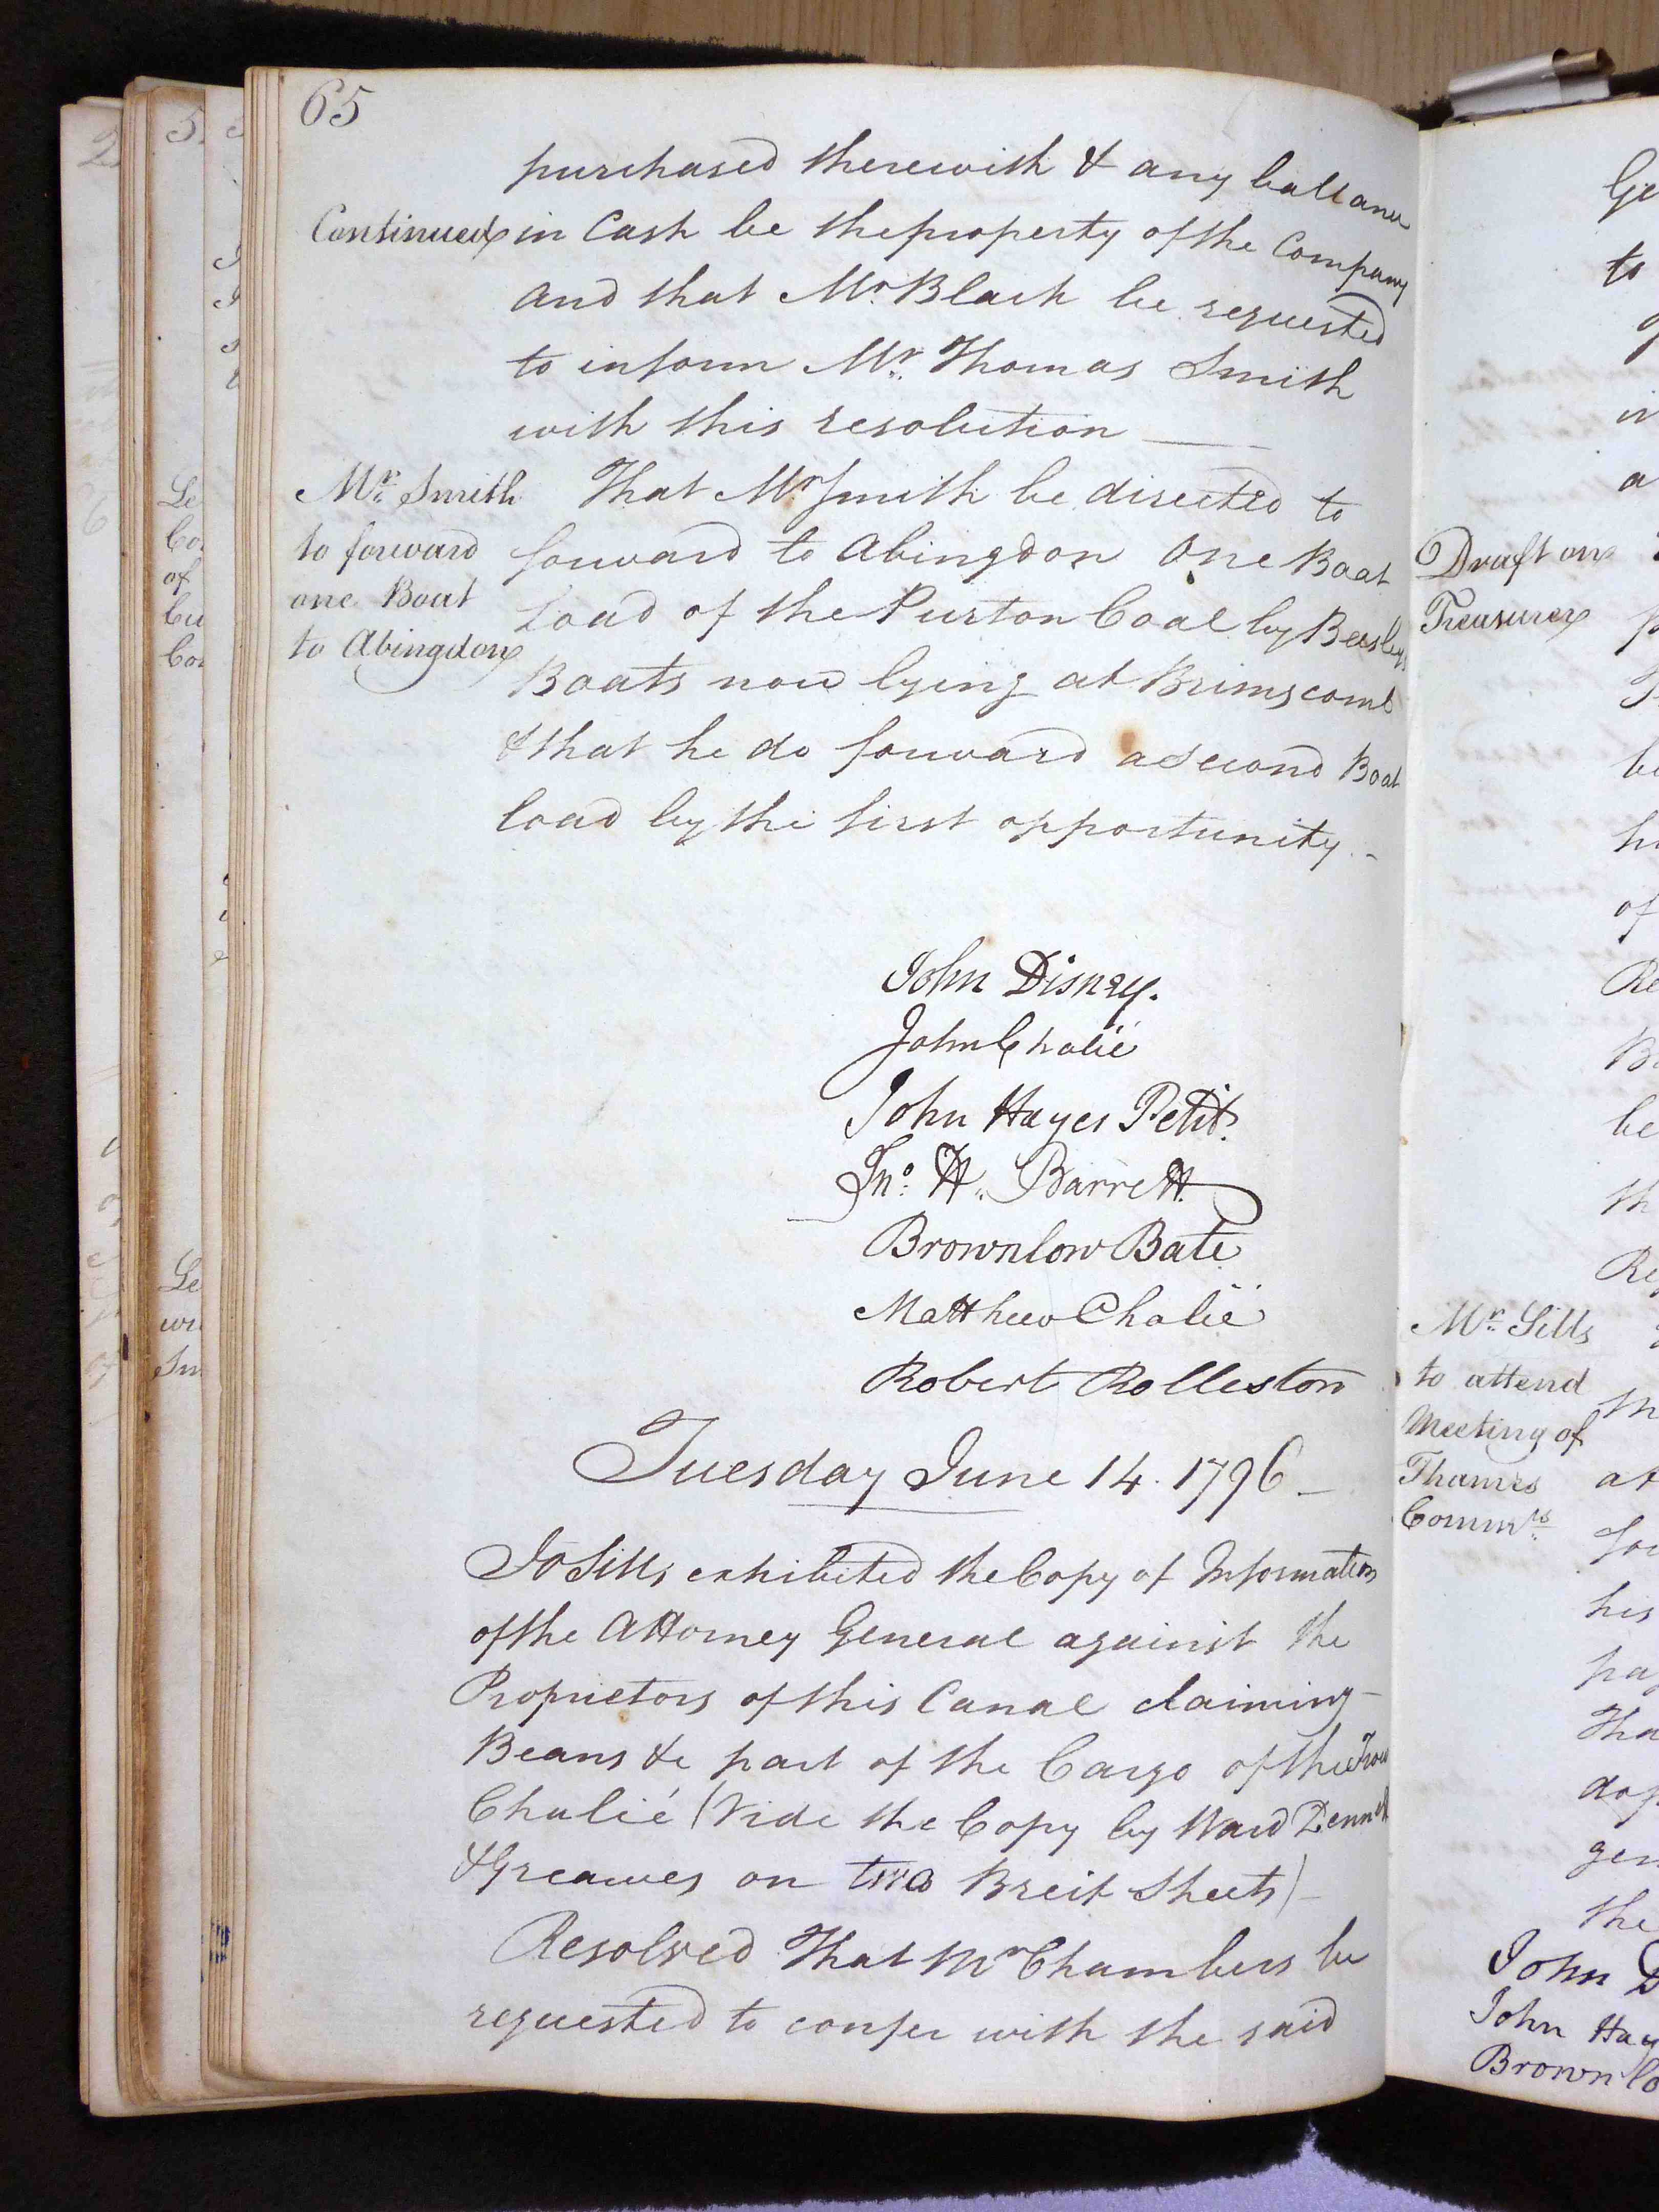 65
purchased therewith & any ballance
Continued in Cash be the property of the Company
and that Mr. Black be requested
to inform Mr. Thomas Smith
with this resolution
Mr. Smith
to forward
one Boat
to Abingdon
That Mr Smith be directed to
forward to Abingdon One Boat
Load of the Purton Coal by Beesleys
Boats now lying at Brimscomb
& that he do forward a Second Boat
load by the first opportunity. -
John Disney.
John Chalié
John Hayes Petit.
Jno. H. Barrett
Brownlow Bate
Matthew Chalié
Robert Rolleston
Tuesday June 14. 1796
Jo Sills exhibited the Copy of Information
of the Attorney General against the
Proprietors of this Canal claiming
Beans &c part of the Cargo of the Trow
Chalié (Vide the Copy by Ward Dennett
& Greaves on two Breif Sheets)
Resolved That Mr Chambers be
requested to confer with the said
Draft on
Treasurer
Mr. Sills
to attend
Meeting of
Thames
Commrs.
to
of
be
his
the
John D
John Hay
Brownlo